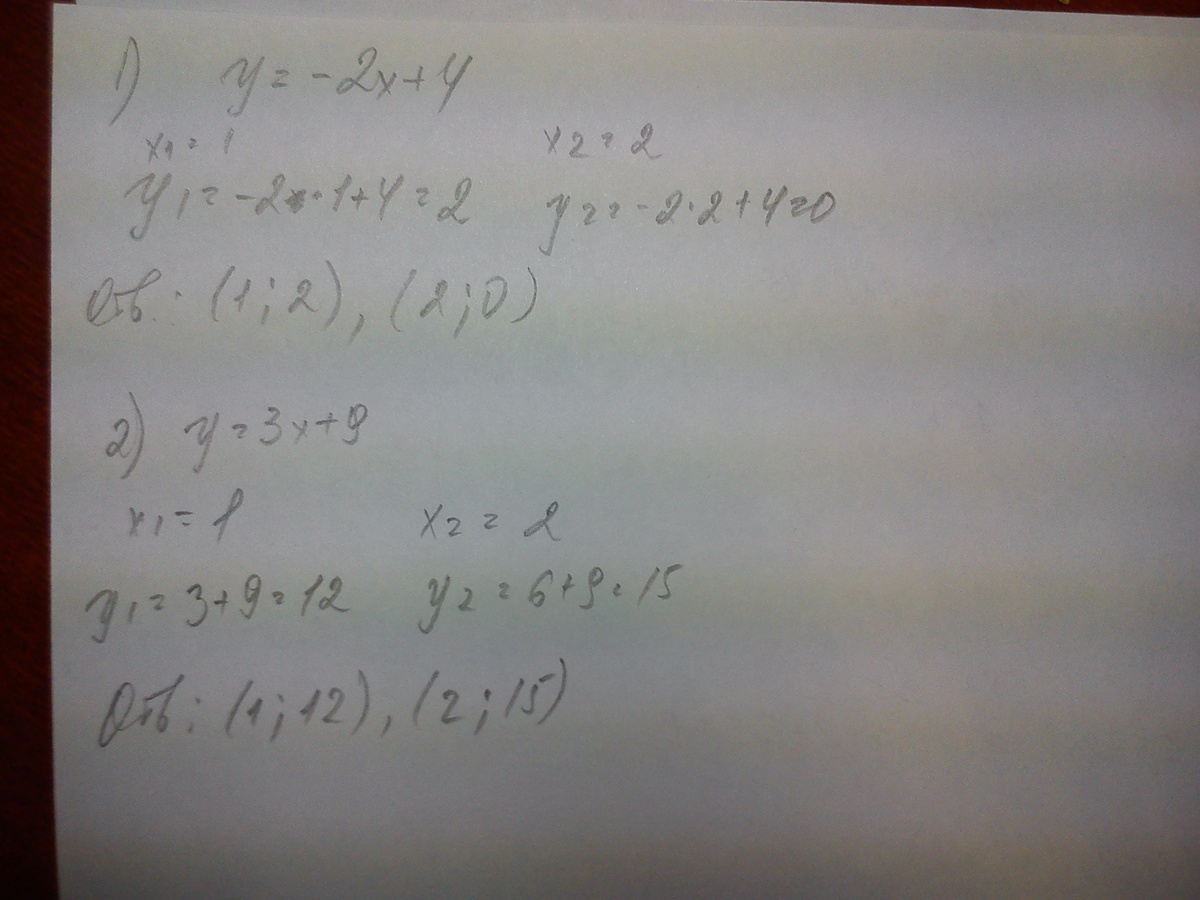 1) y = -2x+4
x1 = 1 x2 = 2
y1 = -2·1+4=2 y2 = -2·2+4=0
Отв: (1; 2), (2; 0)
2) y = 3x+9
x1 = 1 x2 = 2
y1 = 3+9=12 y2 = 6+9=15
Отв: (1; 12), (2; 15)